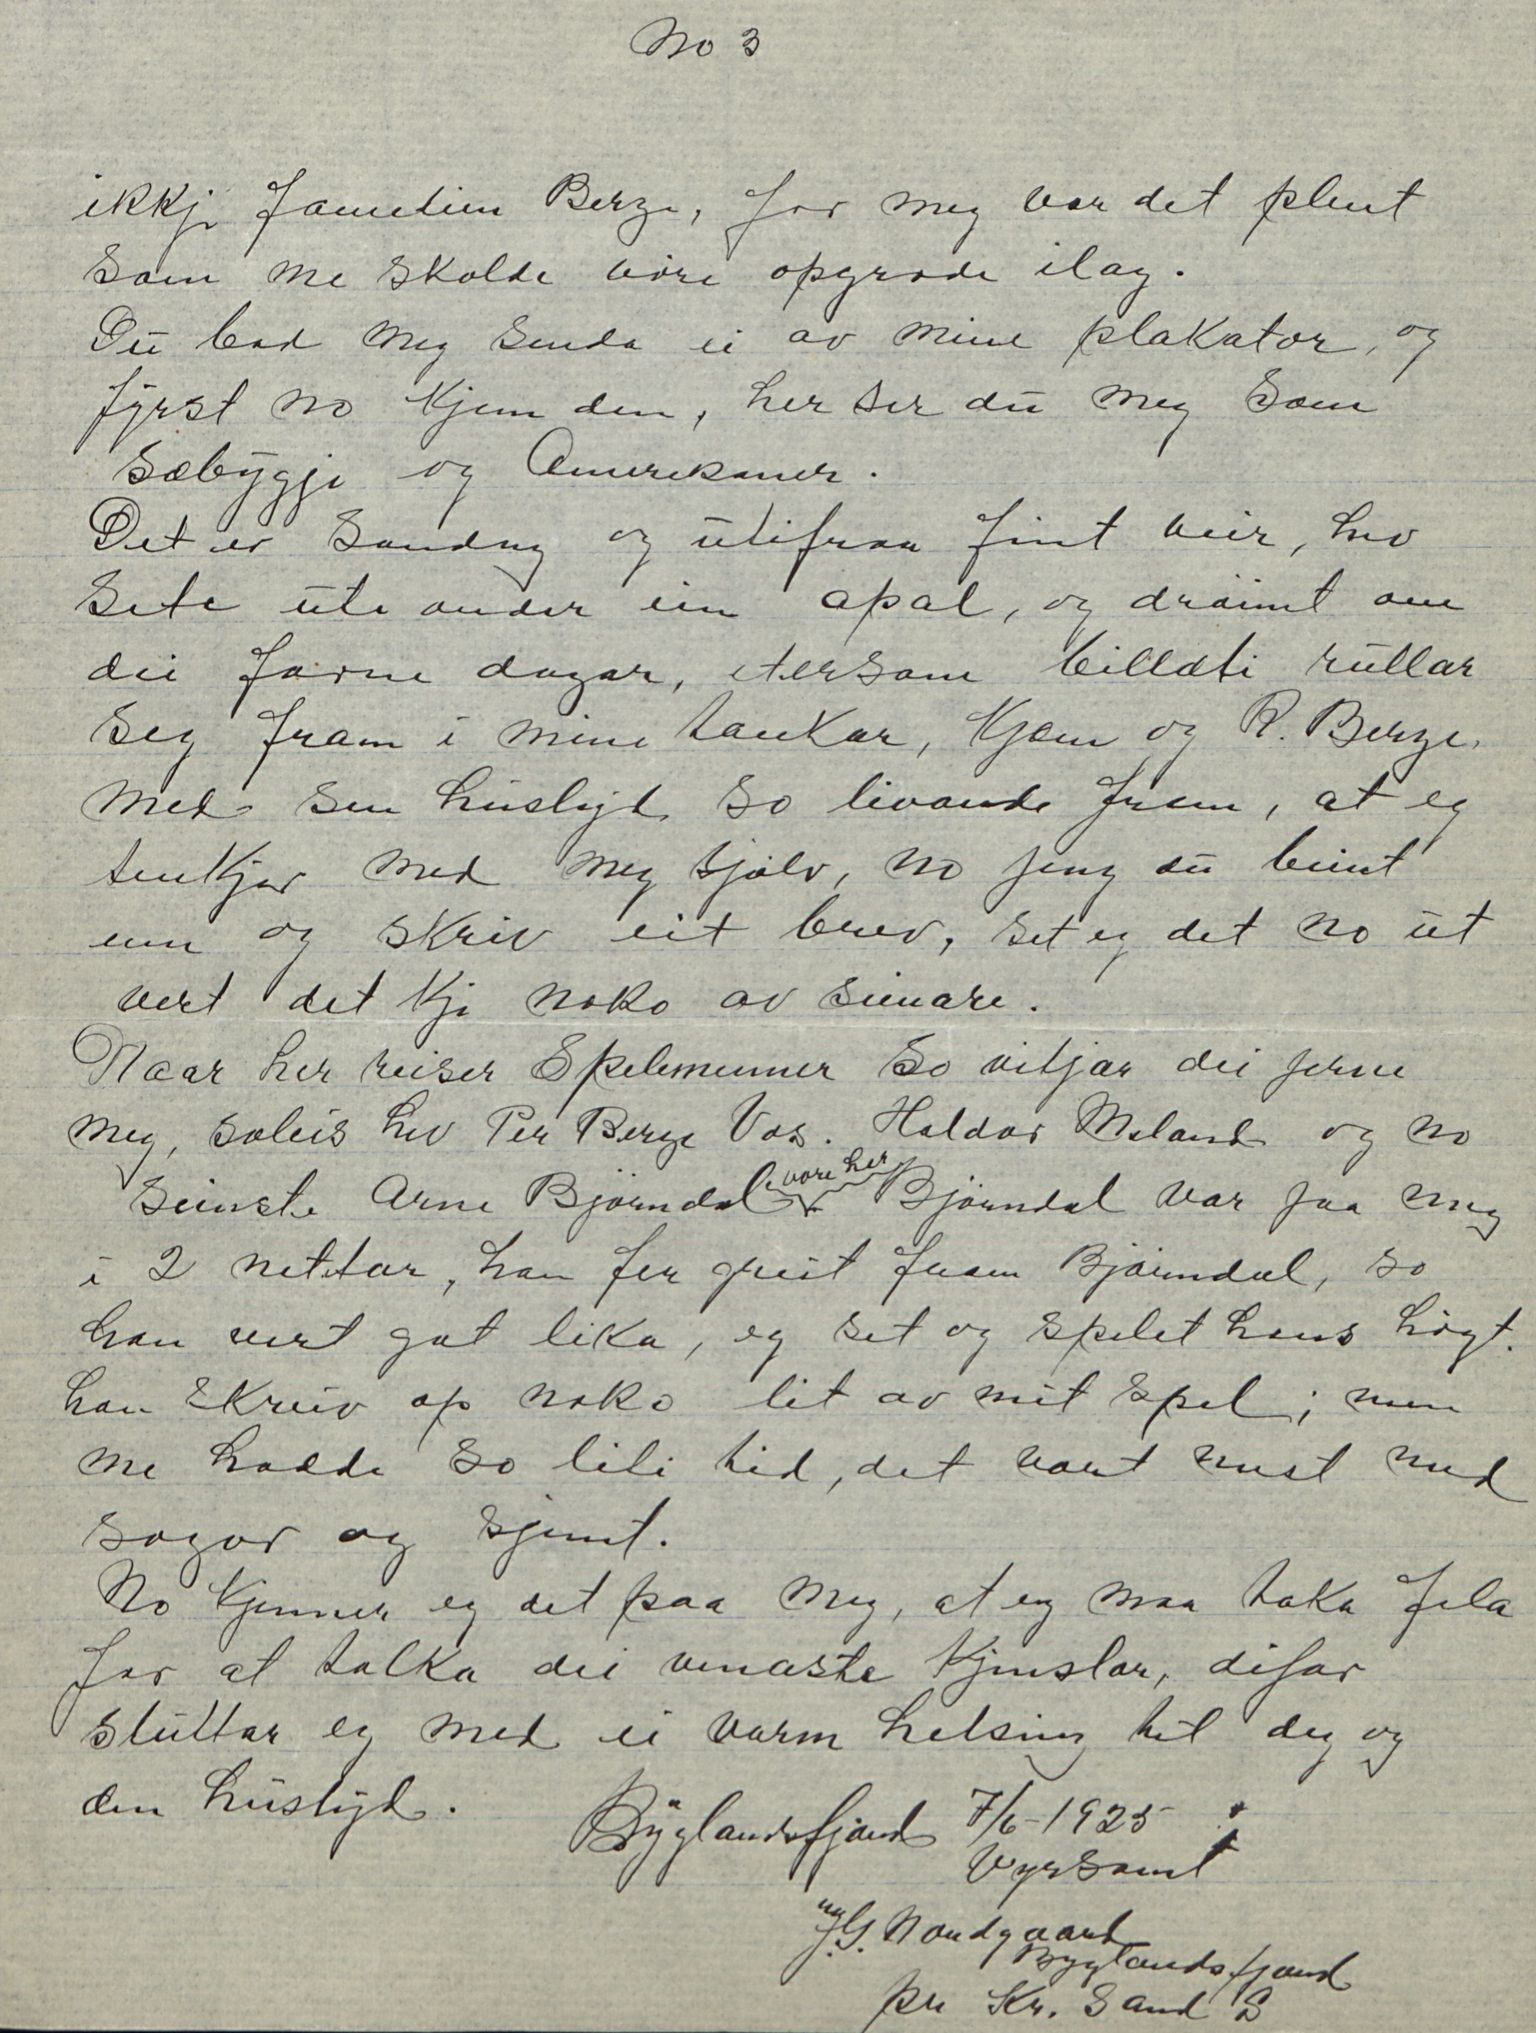 No 3
ikkje framtim Berge, for meg var det plent
som me skolde vöre opgrode ilag.
Du bad meg senda ei av mine plakator, og
fyrst no kjem den, her ser du meg som
sæbyggje og Amerikaner.
Det er Sondag og utifraa fint veir, hev
sete ute onder ein apal, og dröimt om
dei forne dagar, etersom billæti rullar
seg fram i mine tankar, kjem og R. Berge
med sen huslyd so livande fram, at eg
tenkjer med meg sjölv, no feng du beint
enn og skriv eit brev, set eg det no ut
vert det kje noko av seinare.
Naar her reiser Spelemenner so vitjar dei jerne
meg, soleis hev Per Berge Vos. Haldor Meland og no
seinste Arne Björndal vore her Björndal var jaa meg
i 2 nettar, han fer greit fram Björndal, so
han vert got lika, eg set og spelet hans högt.
han skreiv op noko lit av mit spel; men
me hadde so liti tid, det vart mest med
sogor og skjemt.
No kjenner eg det paa meg, at eg maa taka fela
for at talka dei venaste kjenslor, difor
sluttar eg med ei varm helsing til deg og
den huslyd.
Byglandsfjord 7/6-1925
Vyrsamt
J.G. Nordgaard
Byglandsfjord
pr Kr. Sand S